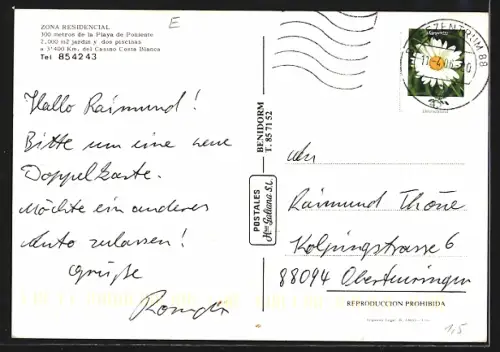 ZONA RESIDENCIAL
300 metros de la Playa de Poniente
2.000 m2 jardin y dos piscinas
a 3'400 Km. del Casino Costa Blanca
Tel 854243
E
Hallo Raimund!
Bitte um eine neue
Doppelkarte.
Möchte ein anderes
Auto zulassen!
Grüße
BENIDORM
T. 85 71 52
POSTALES
Hnos Galiana S.L.
ZENTRUM 88
An
Raimund Thöne
Kolpingstrasse 6
88094 Oberteuringen
REPRODUCCION PROHIBIDA
1,5